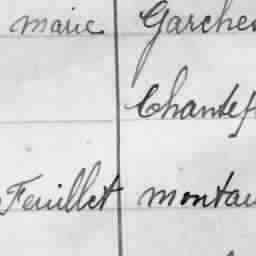 Marie Garches
Chantef
Feuillet Montau